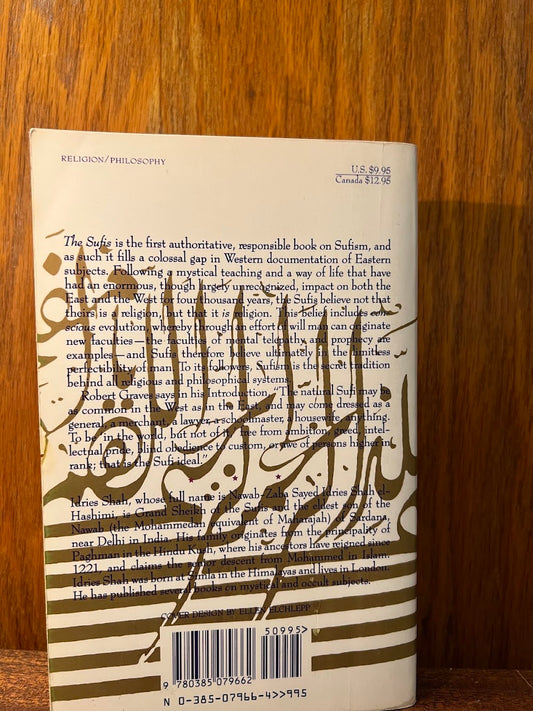 RELIGION/PHILOSOPHY
U.S. $9.95
Canada $12.95
The Sufis is the first authoritative, responsible book on Sufism, and
as such it fills a colossal gap in Western documentation of Eastern
subjects. Following a mystical teaching and a way of life that have
had an enormous, though largely unrecognized, impact on both the
East and the West for four thousand years, the Sufis believe not that
theirs is a religion, but that it is religion. This belief includes con-
scious evolution, whereby through an effort of will man can originate
new faculties—the faculties of mental telepathy and prophecy are
examples—and Sufis therefore believe ultimately in the limitless
perfectibility of man. To its followers, Sufism is the secret tradition
behind all religious and philosophical systems.
Robert Graves says in his Introduction, "The natural Sufi may be
as common in the West as in the East, and may come dressed as a
general, a merchant, a lawyer, a schoolmaster, a housewife, anything.
To be 'in the world, but not of it,' free from ambition, greed, intel-
lectual pride, blind obedience to custom, or awe of persons higher in
rank; that is the Sufi ideal."
Idries Shah, whose full name is Nawab-Zaba Sayed Idries Shah el-
Hashimi, is Grand Sheikh of the Sufis and the eldest son of the
Nawab (the Mohammedan equivalent of Maharajah) of Sardana,
near Delhi in India. His family originates from the principality of
Paghman in the Hindu Kush, where his ancestors have reigned since
1221, and claims the senior descent from Mohammed in Islam.
Idries Shah was born at Simla in the Himalayas and lives in London.
He has published several books on mystical and occult subjects.
COVER DESIGN BY ELLEN ELCHLEPP
50995>
9 780385 079662
N 0-385-07966-4>>995